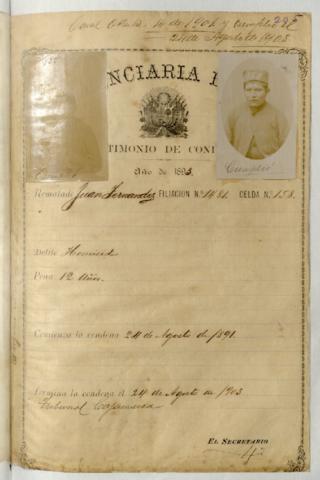 14 de 1902 y cumplió el 295
24 de Agosto de 1903
NCIARIA
TIMONIO DE CON
Año de 1893.
Cumplió
Rematado Juan Fernandez FILIACION N.º 1481. CELDA N.º 158.
Delito Homicid
Pena 12 Años.
Comienza la condena 24 de Agosto de 1891.
Termina la condena el 24 de Agosto de 1903
Tribunal Cajamarca
EL SECRETARIO